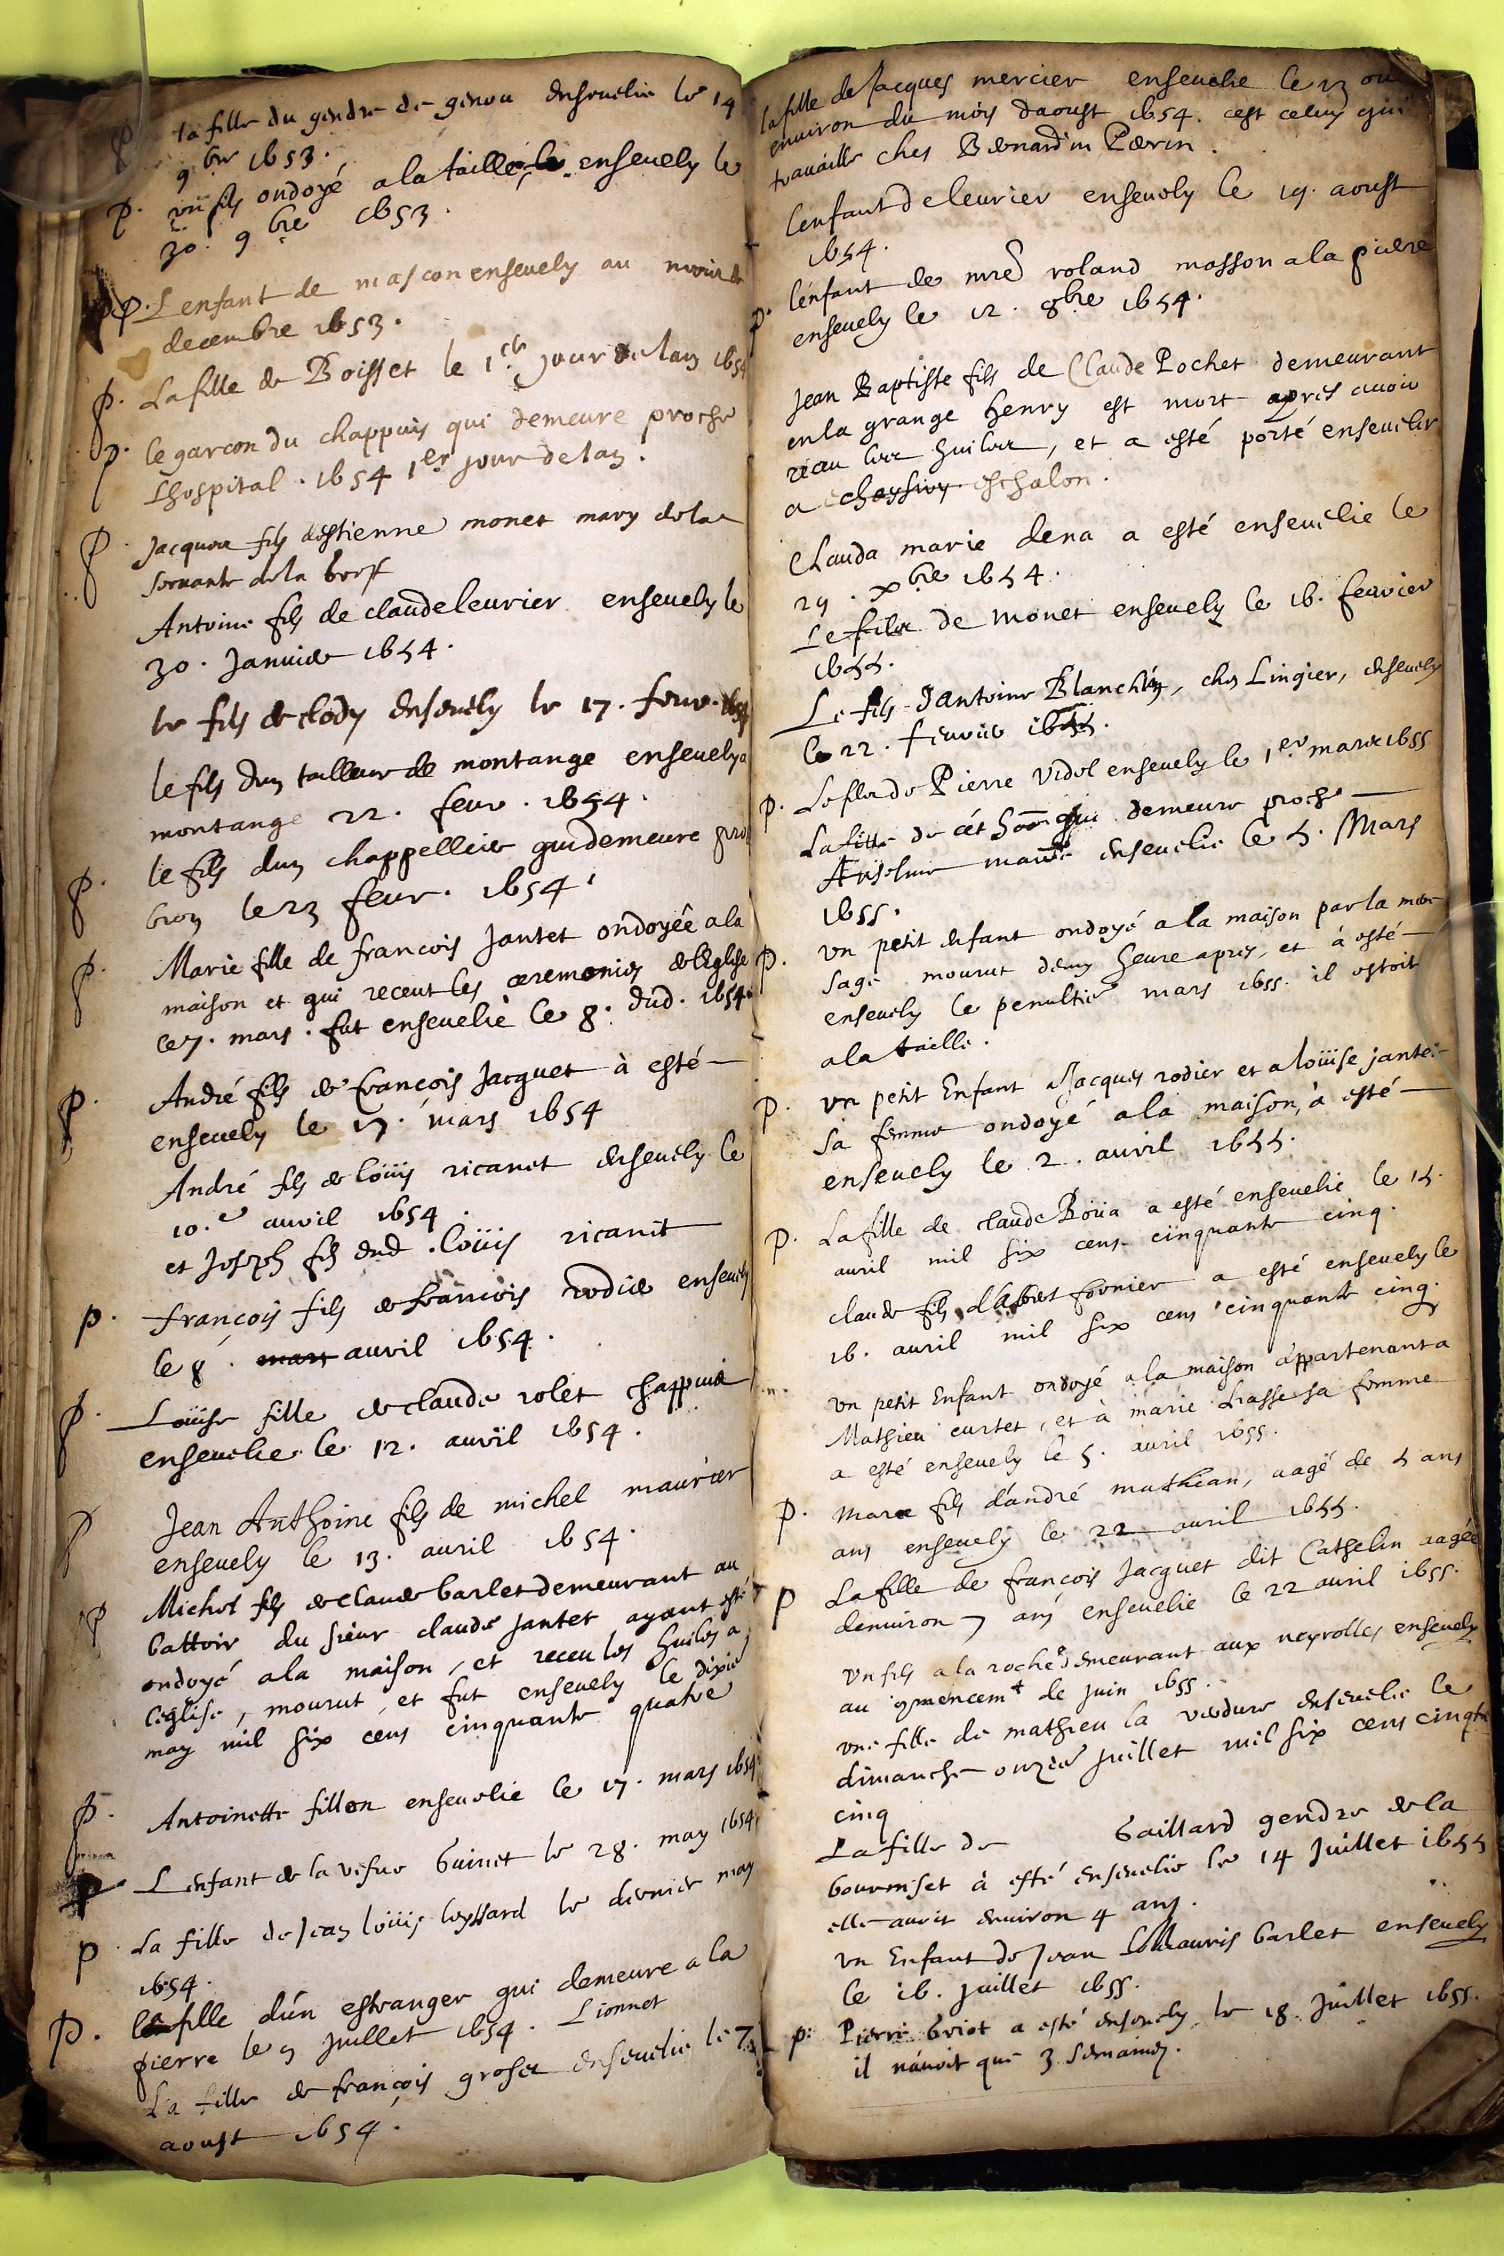 la fille du gendre de genou ensevelie le 19
9bre 1653.
p. un fils ondoyé a la taille ensevely le
30. 9bre 1653.
p. L enfant de mascon ensevely au mois de
decembre 1653.
p. La fille de Boisset le 1er jour de lan 1654
p. le garcon du chappuis qui demeure proche
Lhospital. 1654 1er jour de lan.
p. Jacques fils destienne monet mary de la
servante de la
Antoine fils de claude levrier ensevely le
30. Janvier 1654.
le fils de clody ensevely le 17. fevr. 1654
le fils dun tailleur de montange ensevely a
montange 22. fevr. 1654.
p. le fils dun chappellier qui demeure
le 23 fevr. 1654.
p. Marie fille de francois Jantet ondoyée a la
maison et qui receut les ceremonies de leglise
le 7. mars. fut ensevelie le 8. dud. 1654.
p. André fils de francois Jacquet à esté
ensevely le 17. mars 1654
André fils de loüis ricanet ensevely le
10.e avril 1654.
et Joseph fils dud. Loüis ricanet
p. francois fils de francois rodier ensevely
le 8. mars avril 1654.
p. Loüise fille de claude rolet chappuis
ensevelie le 12. avril 1654.
p Jean Anthoine fils de michel maurier
ensevely le 13. avril 1654.
p Michel fils de claude barlet demeurant au
battoir du sieur claude jantet ayant esté
ondoyé a la maison, et receu les huiles a
leglise, mourut, et fut ensevely le dixie
may mil six cens cinquante quatre
p. Antoinette fillon ensevelie le 17. mars 1654
p L enfant de la vefve Guinet le 28. may 1654
p. La fille de Jean loüis leyssard le dernier may
1654.
p. la fille dún estranger qui demeure a la
pierre le 9 juillet 1654. Lionnet
La fille de francois groset ensevelie le 7.
aoust 1654.
la fille de Jacques mercier ensevelie le 23 ou
environ du mois daoust 1654. cest celuy qui
travaille ches Bernardin Perrin.
lenfant de levrier ensevely le 19. aoust
1654.
p. lénfant de mre roland masson a la pierre
ensevely le 12. 8bre 1654.
Jean Baptiste fils de Claude Pochet demeurant
en la grange henry est mort apres avoir
receu les huiles, et a esté porté ensevelir
a eschalon.
Clauda marie dena a esté ensevelie le
29. xbre 1654.
Le fils de Monet ensevely le 16. fevrier
1655.
Le fils dantoine Blanchin, ches Lingier, ensevely
le 22. fevrier 1655.
p. Le fils de Pierre Vidol ensevely le 1er mars 1655
La fille de cét hom̃e qui demeure proche
Anselme ensevelie le 5. Mars
1655.
p. un petit enfant ondoyé a la maison par la mere
sage mourut demy heure apres, et à esté
ensevely le penultie mars 1655. il estoit
a la taille.
p. un petit Enfant a Jacques rodier et a loüise jantet
sa femme ondoyé a la maison, à esté
ensevely le 2. avril 1655.
p. La fille de claude Boüa a esté ensevelie le 15.
avril mil six cens cinquante cinq.
claude fils dAlbert fornier a esté ensevely le
16. avril mil six cens cinquante cinq.
un petit Enfant ondoyé a la maison appartenant a
Mathieu curtet, et à marie Lhasse sa femme
a esté ensevely le 5. avril 1655.
p. Marc fils dándré mathian, aagé de 5 ans
ans ensevely le 22 avril 1655.
p La fille de francois Jacquet dit Cathelin aagée
denviron 7 ans ensevelie le 22 avril 1655.
un fils a la roche demeurant aux neyrolles ensevely
au 9mencemt de juin 1655.
une fille de mathieu la verdure ensevelie le
dimanche onzie juillet mil six cens cinqte
cinq
La fille de Gaillard gendre de la
bourniset à esté ensevelie le 14 Juillet 1655
elle avoit environ 4 ans.
un Enfant de Jean Mauris barlet ensevely
le 16. juillet 1655.
p: Pierre Griot a esté ensevely le 18. Juillet 1655.
il n'avoit que 3 semaines.